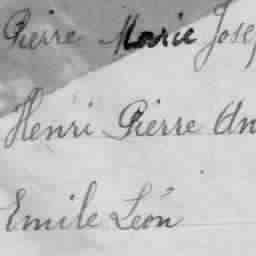 Pierre Marie Jose
Henri Pierre An
Emile Léon